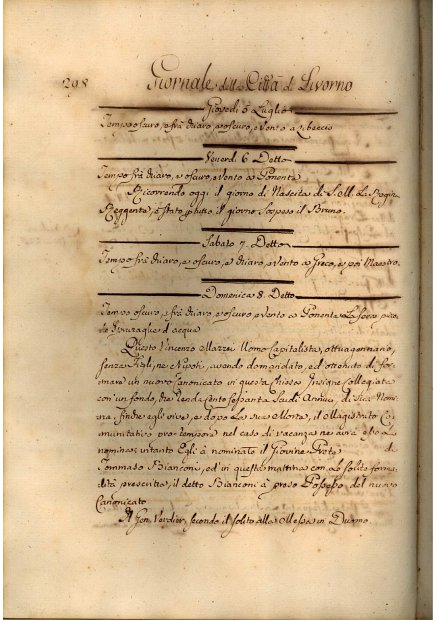 298
Giornale della Città di Livorno
Giovedì 5 Luglio
Tempo oscuro, e frà chiaro, e oscuro, e vento a Libeccio
Venerdì 6 Detto
Tempo frà chiaro, e oscuro, e vento a Ponente
Ricorrendo oggi il giorno di Nascita di S. M. La Regina
Reggente, è stato tutto il giorno sospeso il Bruno.
Sabato 7 Detto
Tempo frà chiaro, e oscuro, e chiaro, e vento a Greco, e poi Maestro.
Domenica 8 Detto
Tempo oscuro, e frà chiaro, e oscuro, e vento a Ponente La sera
d'acqua
Questo Vincenzo Mazzei Uomo Capitalista, ottuagenario,
senza Figli, ne Nipoti, avendo domandato, ed ottenuto di for=
mare un nuovo Canonicato in questa Chiesa Insigne Collegiata
con un fondo, che renda Cento sessanta Scudi Annui, di sua Nomi=
na, finche egli vive, e dopo La sua Morte, il Magistrato Co=
munitativo pro=tempore nel caso di vacanza ne avrà esso La
nomina; intanto Egli à nominato il Giovine Prete
Tommaso Bianconi, ed in questa mattina con Le solite forma=
lità prescritte, il detto Bianconi à preso Possesso del nuovo
Canonicato
Il Gen. Verdier, secondo il solito alla Messa in Duomo.